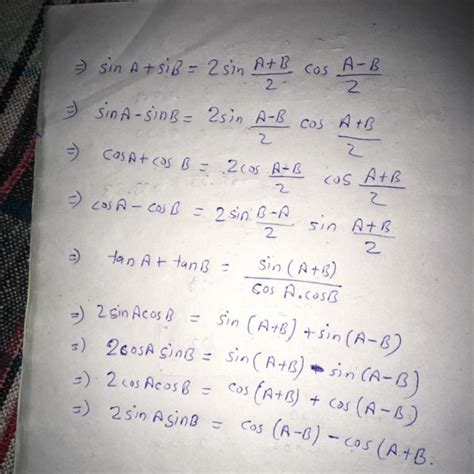 ⇒ sin A + siB = 2 sin (A+B)/2 cos (A-B)/2
⇒ sinA - sinB = 2 sin (A-B)/2 cos (A+B)/2
⇒ cosA + cos B = 2 cos (A-B)/2 cos (A+B)/2
⇒ cosA - cosB = 2 sin (B-A)/2 sin (A+B)/2
⇒ tan A + tan B = sin (A+B)/cos A.cosB
⇒ 2 sinA cosB = sin (A+B) + sin (A-B)
⇒ 2 cosA sinB = sin (A+B) - sin (A-B)
⇒ 2 cosA cosB = cos (A+B) + cos (A-B)
⇒ 2 sin A sinB = cos (A-B) - cos (A+B.